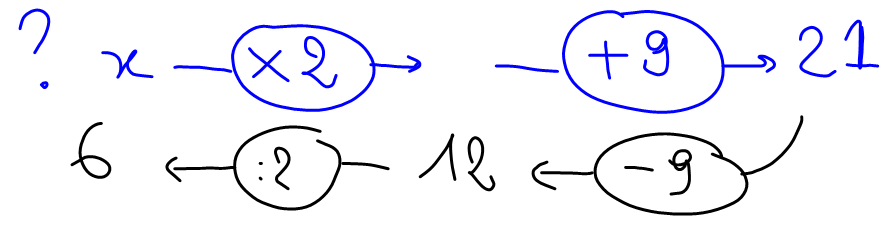 ? x ×2 +9 21
6 :2 12 -9